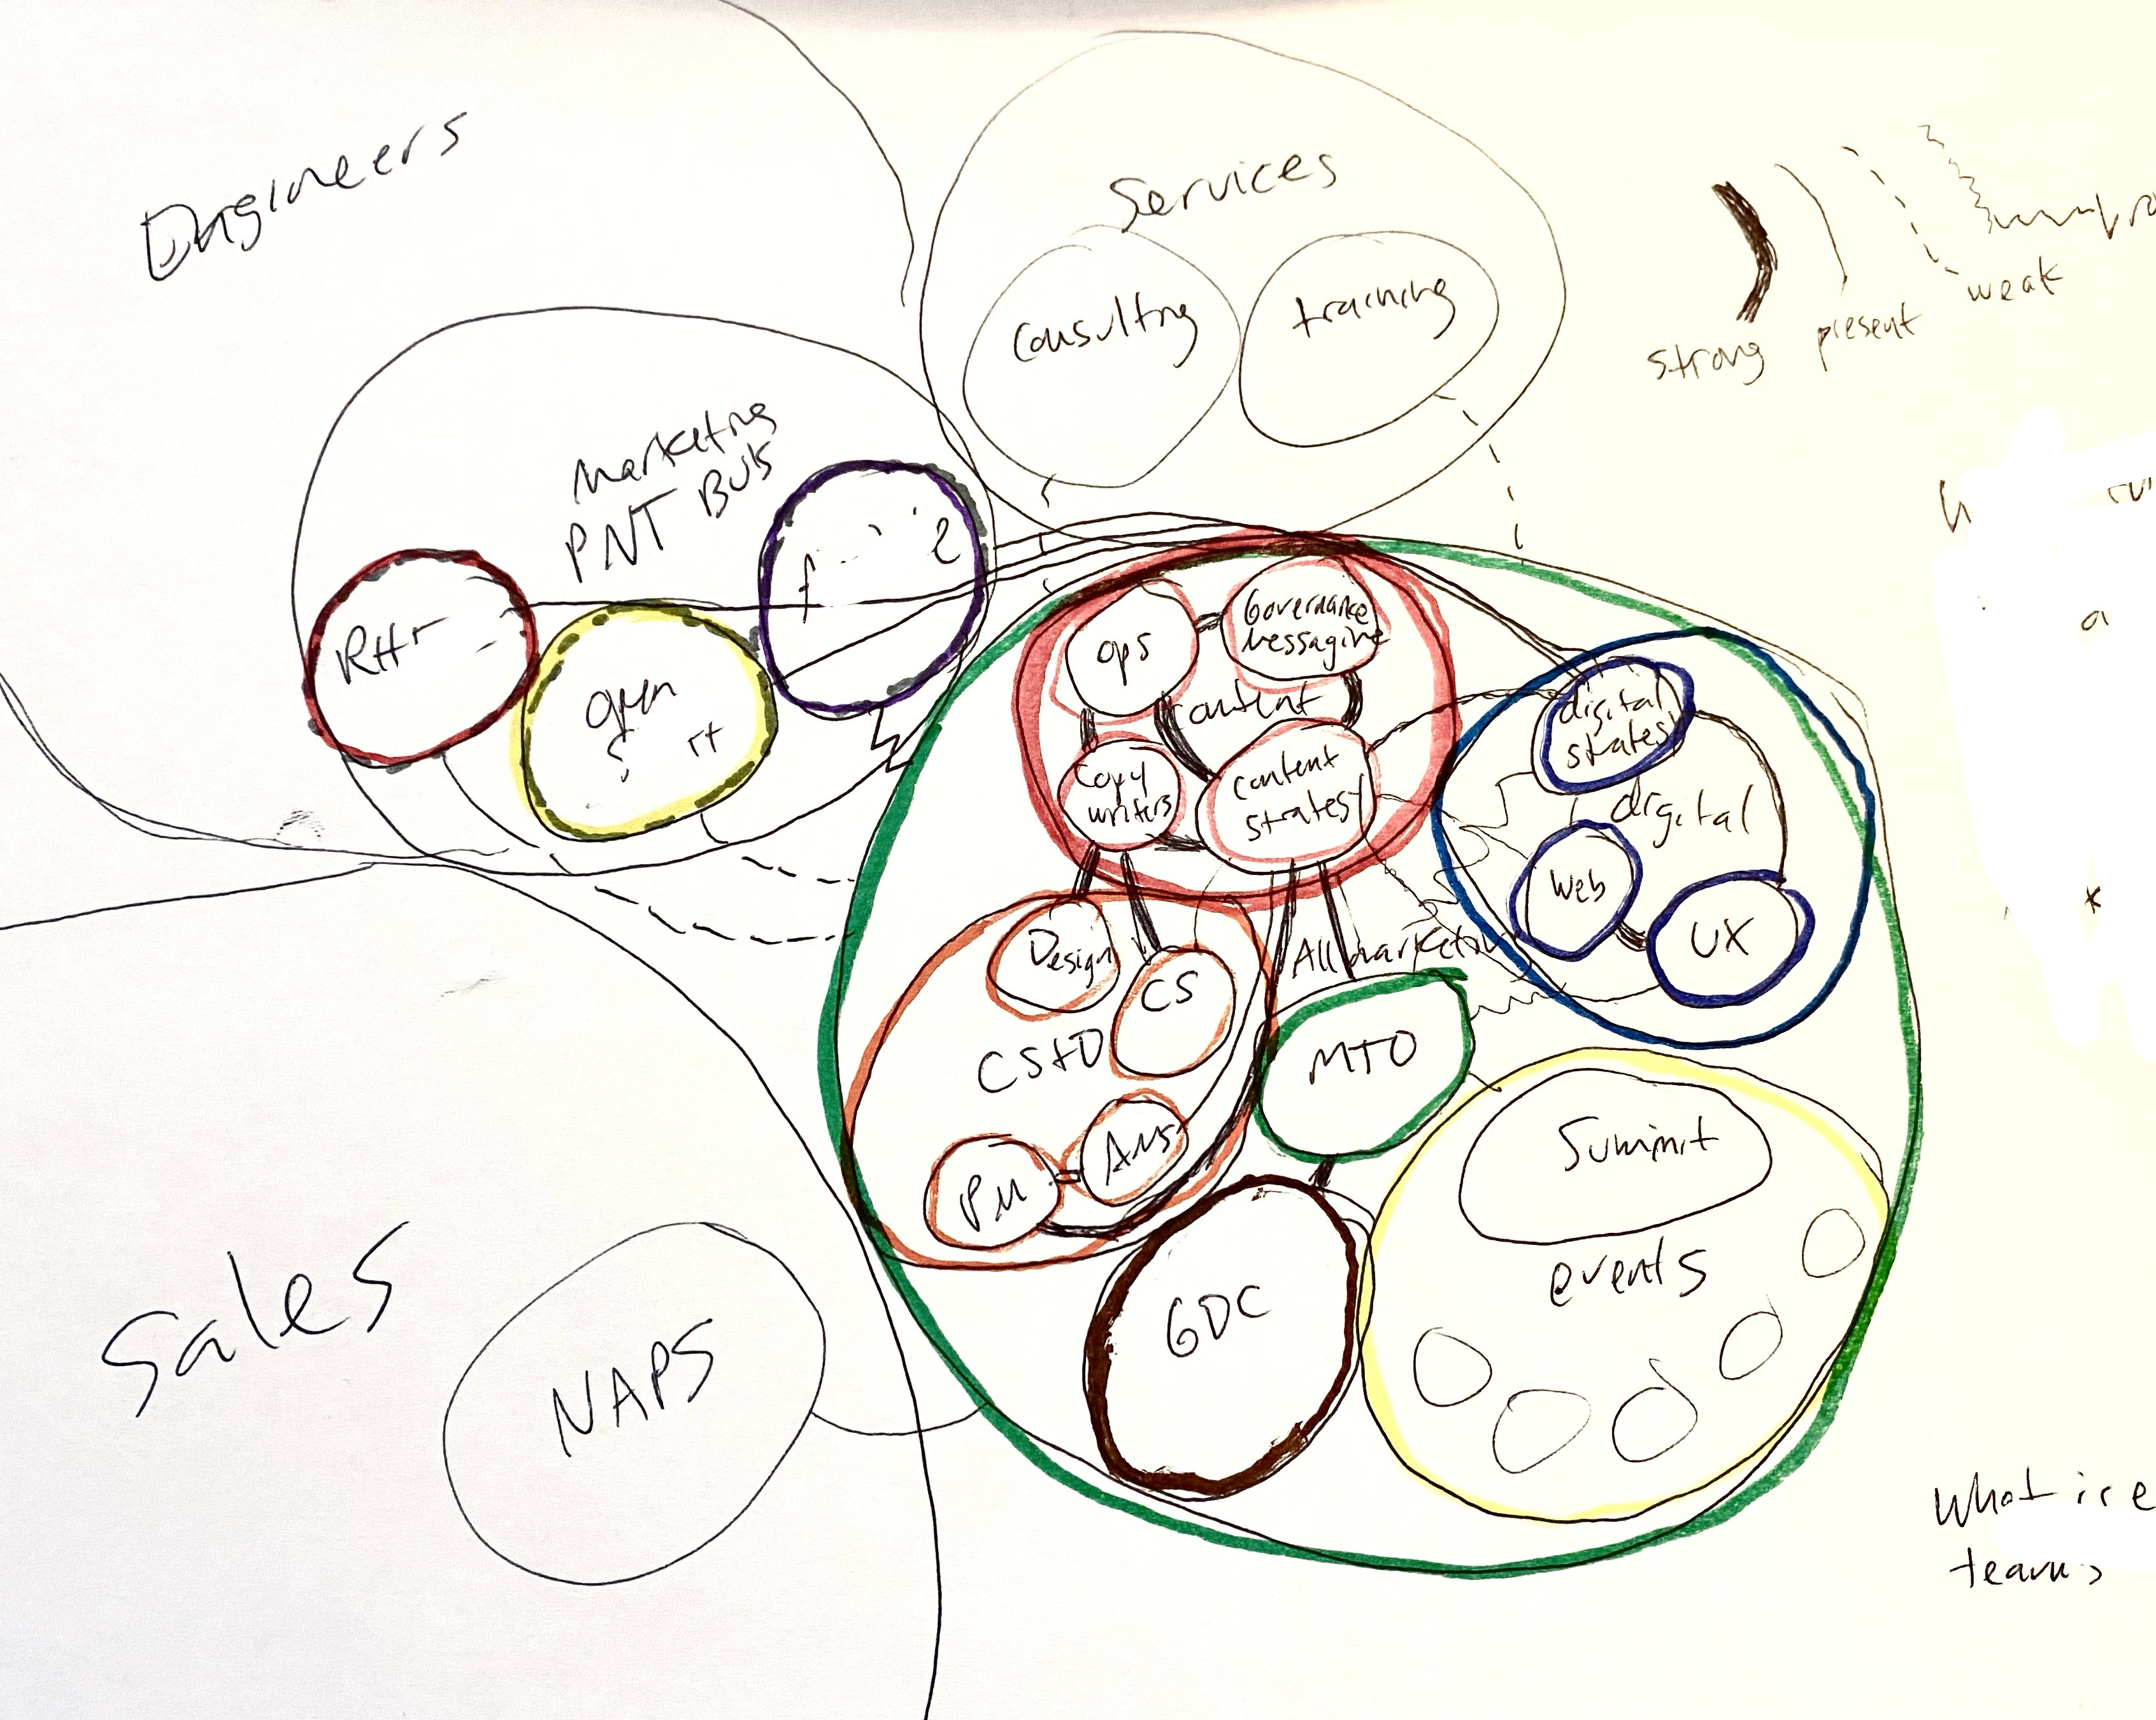 Engineers
Services
Consulting
training
strong
present
weak
Marketing
PNT BUs
ops
Governance
Messaging
content
copy
writers
content
strategy
digital
strategy
digital
Web
UX
All marketing
Design
CS
CS+D
PM
MTO
GDC
Summit
events
Sales
NAPS
a
*
What is
teams